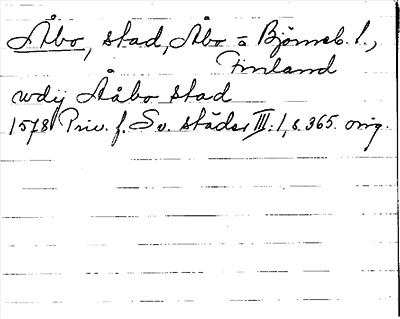 Åbo, stad, Åbo o Björneb. l.,
Finland
wdij Ååbo stad
1578 Priv. f. Sv. städer III:1, s. 365. orig.